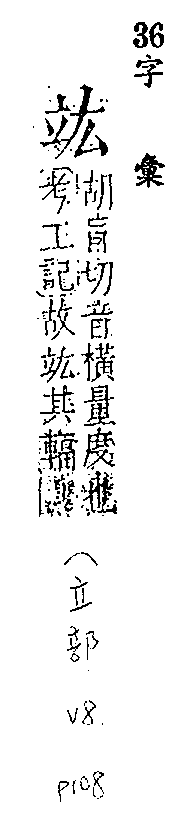 36字彙
竑
胡盲切音橫量度
考工記故竑其輻
（立部 V8. P108